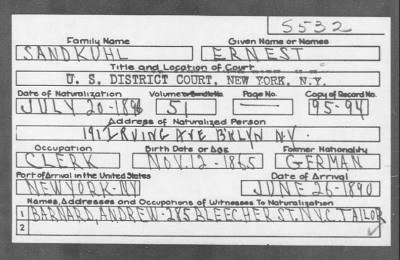 5532
Family Name Given Name or Names
SANDKUHL ERNEST
Title and Location of Court
U. S. DISTRICT COURT, NEW YORK, N.Y.
Date of Naturalization Volume or Bundle No. Page No. Copy of Record No.
JULY 20-1896 51 195-94
Address of Naturalized Person
191 IRVING AVE BKLYN N.Y.
Occupation Birth Date or Age Former Nationality
CLERK NOV. 12-1865 GERMAN
Port of Arrival in the United States Date of Arrival
NEW YORK-NY JUNE 26-1890
Names, Addresses and Occupations of Witnesses To Naturalization
1 BARNARD, ANDREW-285 BLEECHER ST. N.Y.C. TAILOR
2